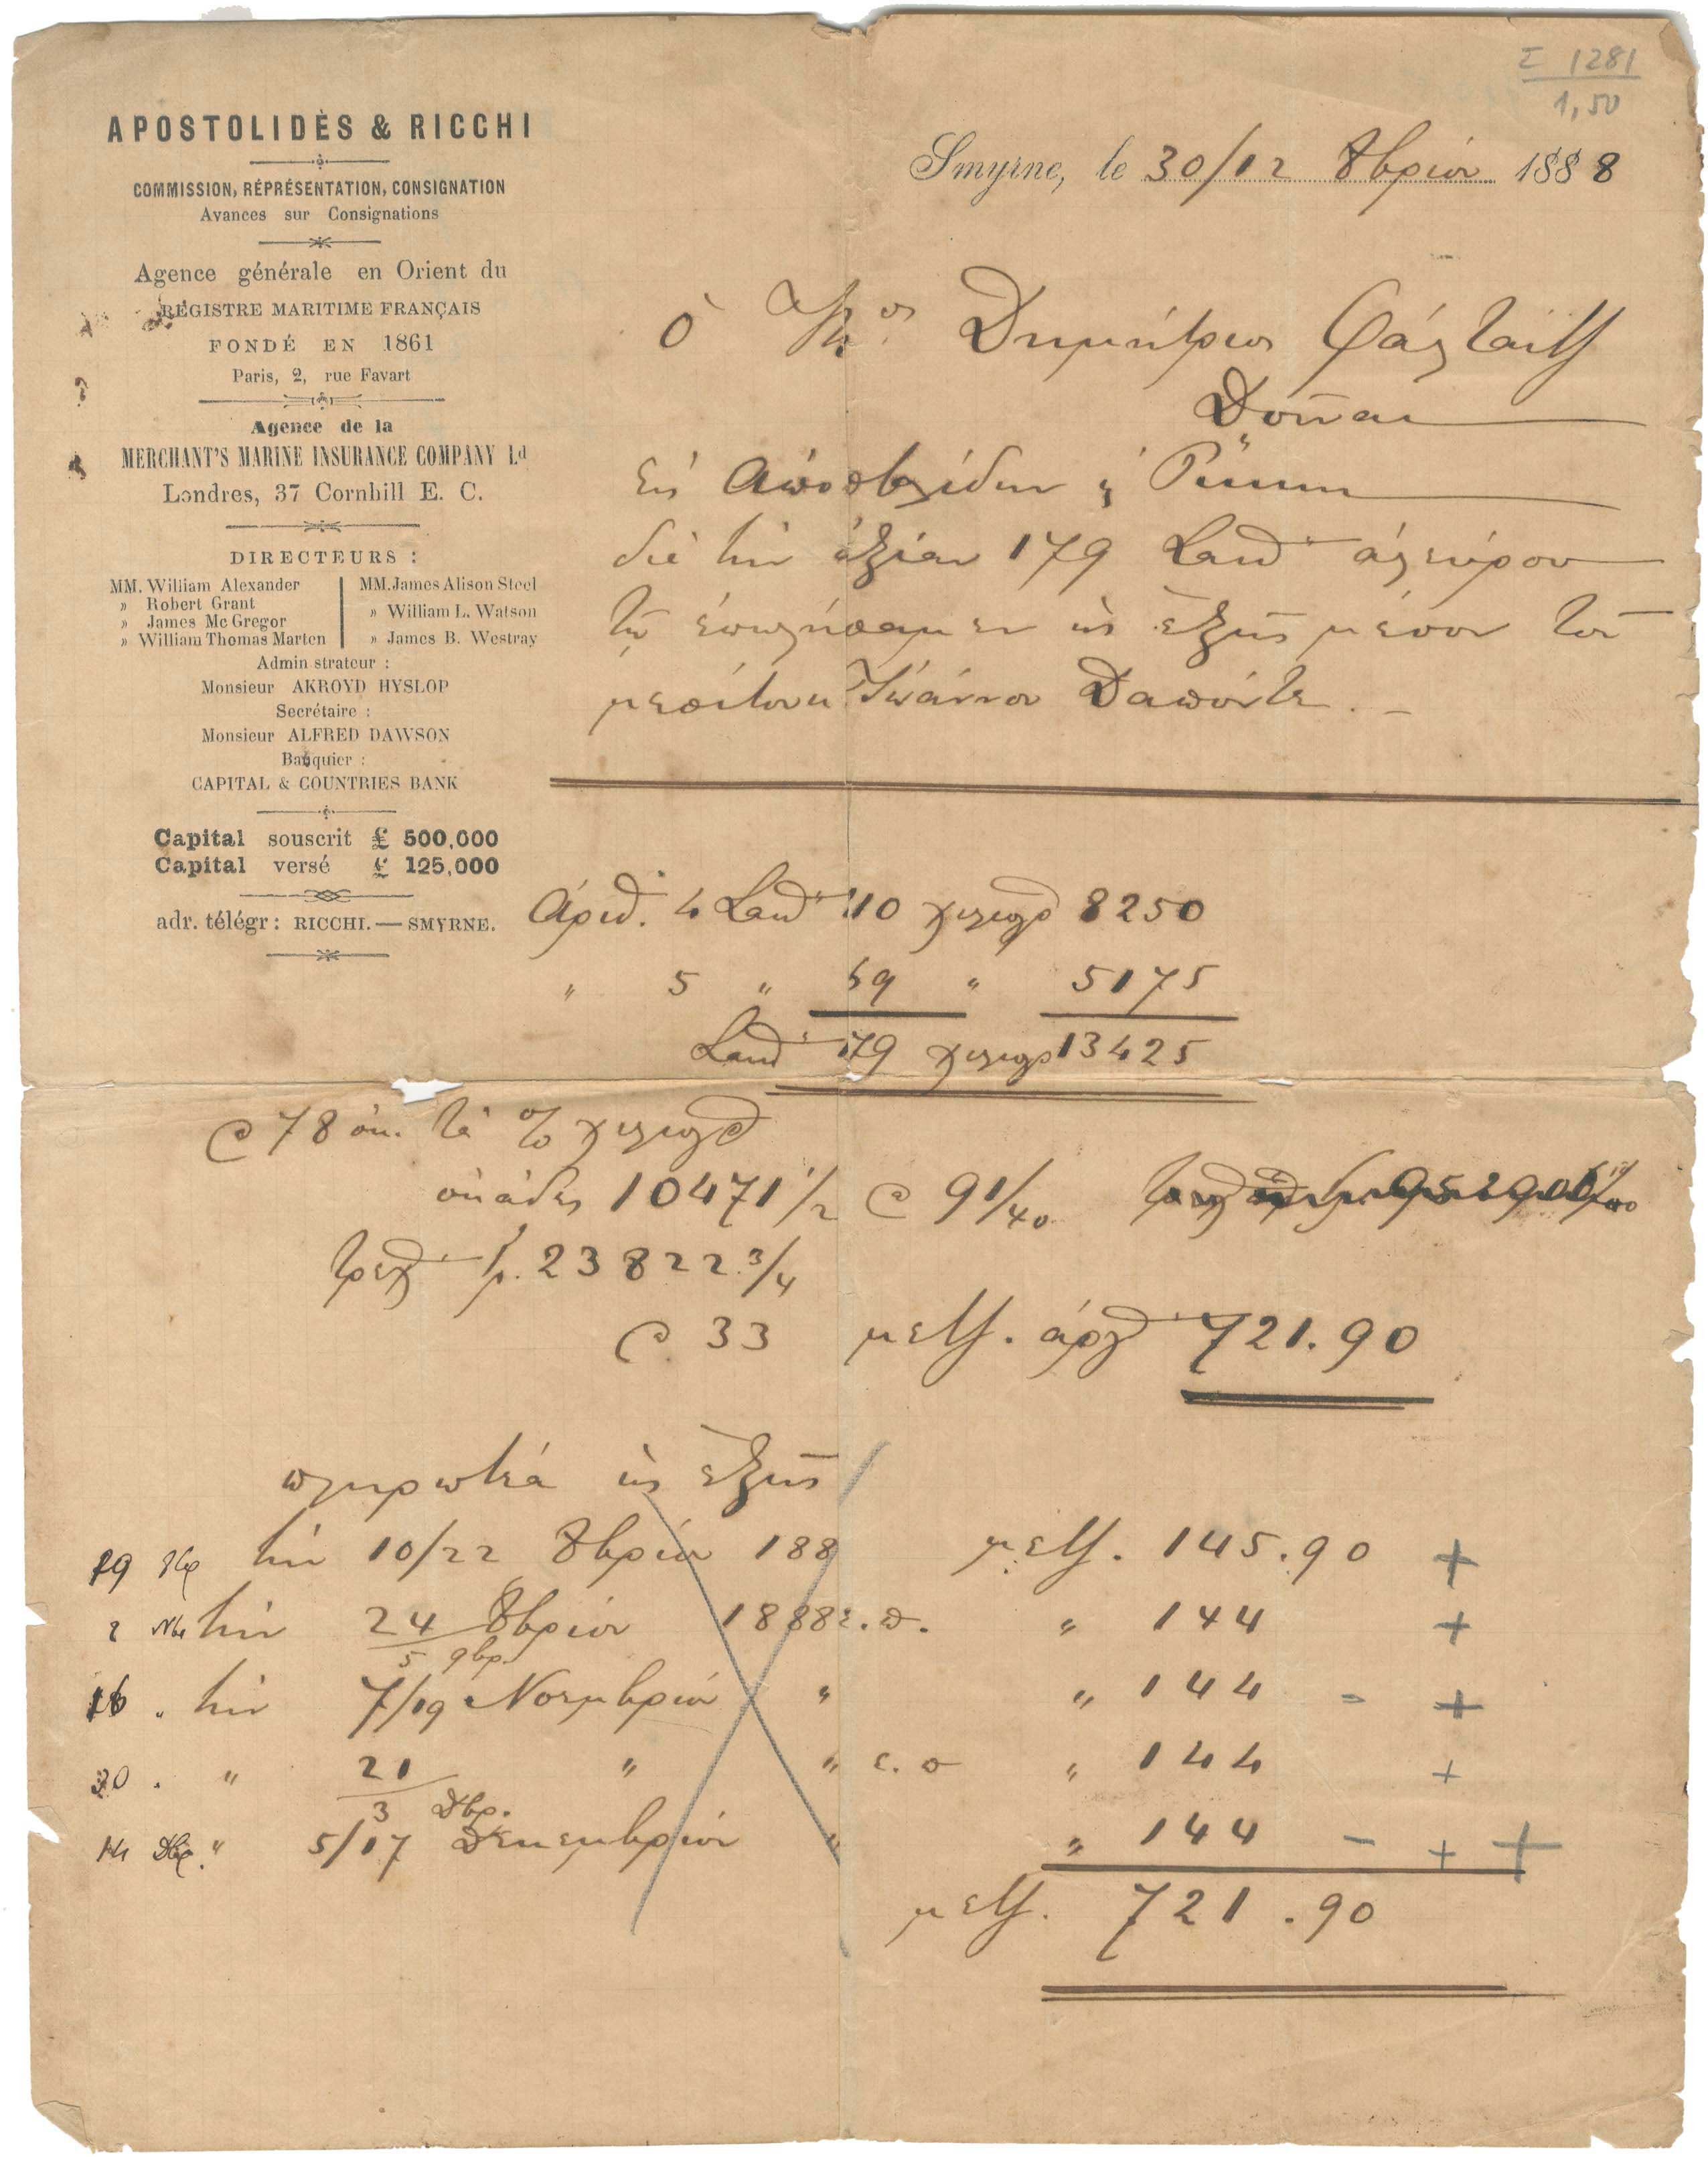 Σ 1281
1,50
APOSTOLIDÈS & RICCHI
COMMISSION, RÉPRÉSENTATION, CONSIGNATION
Avances sur Consignations
Agence générale en Orient du
REGISTRE MARITIME FRANÇAIS
FONDÉ EN 1861
Paris, 2, rue Favart
Agence de la
MERCHANT'S MARINE INSURANCE COMPANY Ld
Londres, 37 Cornhill E. C.
DIRECTEURS :
MM. William Alexander
» Robert Grant
» James Mc Gregor
» William Thomas Marten
MM. James Alison Steel
» William L. Watson
» James B. Westray
Admin strateur :
Monsieur AKROYD HYSLOP
Secrétaire :
Monsieur ALFRED DAWSON
Banquier :
CAPITAL & COUNTRIES BANK
Capital souscrit £ 500,000
Capital versé £ 125,000
adr. télégr : RICCHI. — SMYRNE.
Smyrne, le 30/12 8βρίου 1888
ὁ Κος Δημήτριος
Δοῦναι
εἰς Ἀποστολίδην & Ρίκκην
διὰ τὴν ἀξίαν 179 σακ ἀλεύρου
τῷ ἐπωλήσαμεν ὡς ἑξῆς μέσον τοῦ
μεσίτου Ἰωάννου Δαπόντε. –
Ἀριθ. 4 σακ 110 χιλιογ 8250
" 5 " 69 " 5175
σακ 179 χιλιογ 13425
@ 78 ὀκ. τὰ % χιλιογ
ὀκάδες 10471 1/2 @ 91/40
γρ. 23822 3/4
@ 33 μετζ. ἀργ 721.90
πληρωτέα ὡς ἑξῆς
19 8βρ τὴν 10/22 8βρίου 188 μετζ. 145.90 +
2 Νβρ τὴν 24/5 9βρ. 8βρίου 1888 " 144 +
16 " τὴν 7/19 Νοεμβρίου " " 144 – +
30 . " 21/3 Δβρ. " " " 144 +
14 Δβρ. " 5/17 Δεκεμβρίου " " 144 – + +
μετζ. 721.90